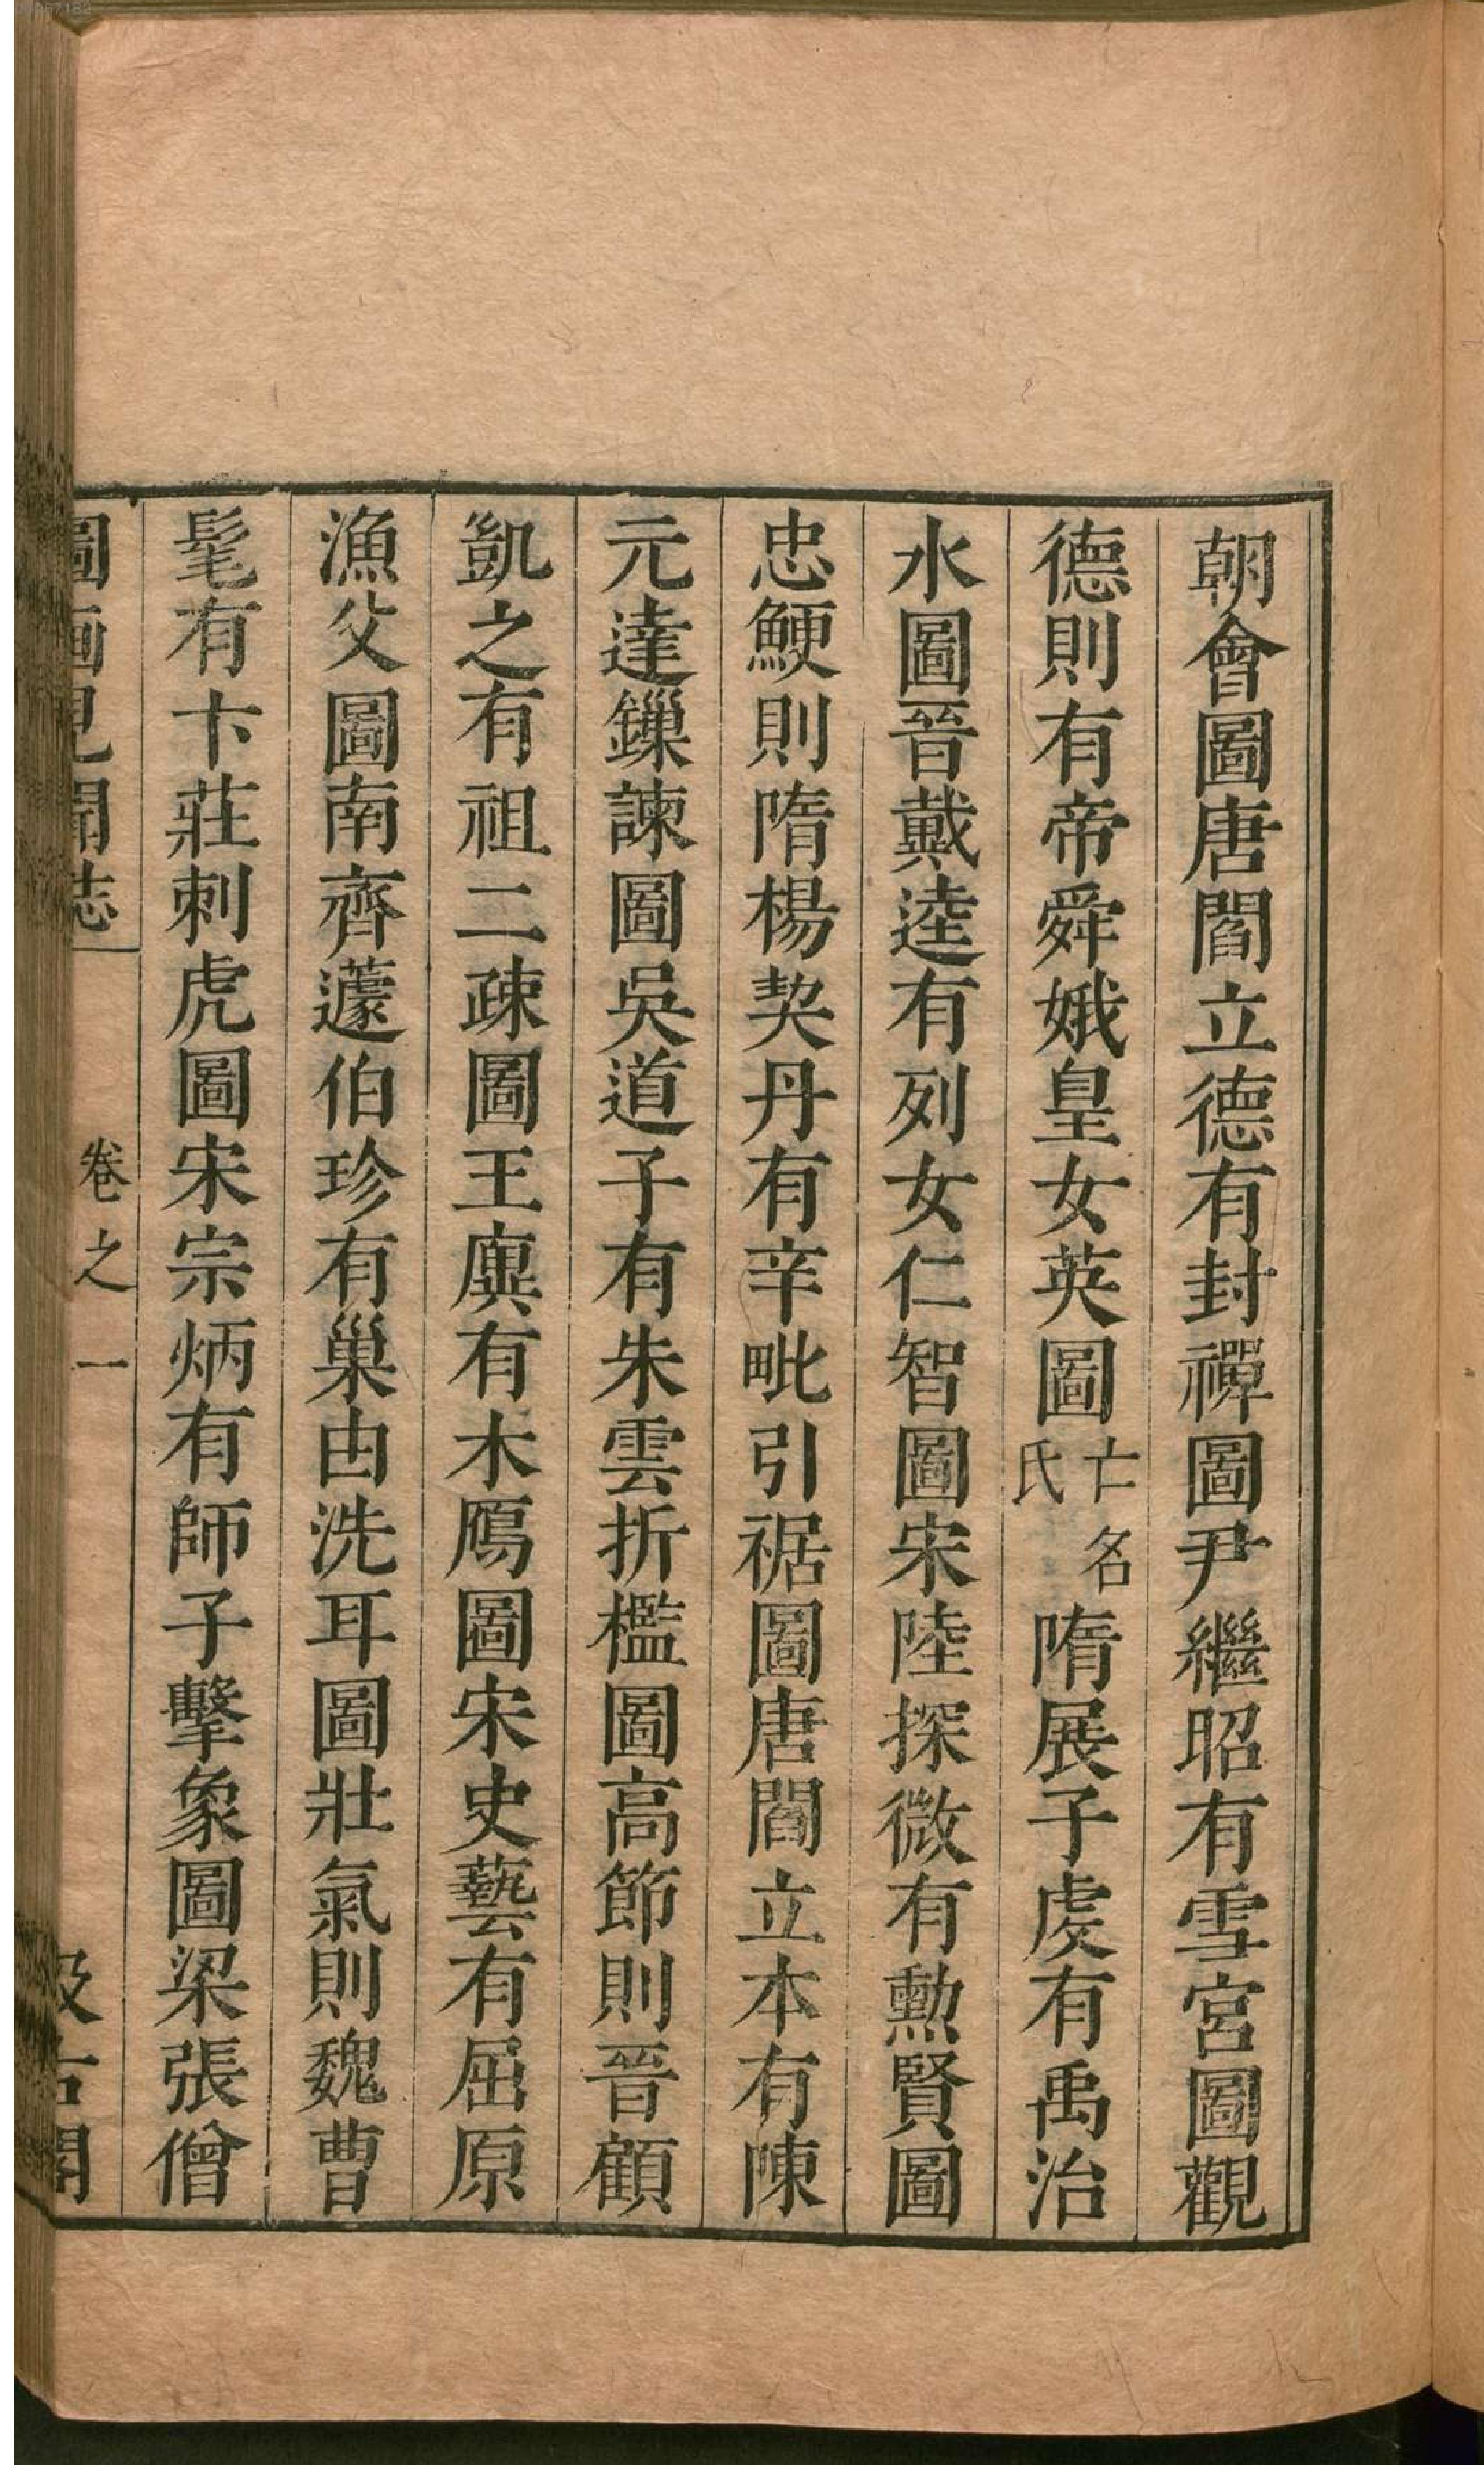 朝會圖唐閻立德有封禪圖尹繼昭有雪宮圖觀
德則有帝舜娥皇女英圖亡名氏隋展子䖍有禹治
水圖晉戴逵有列女仁智圖宋陸探微有勲賢圖
忠鯁則隋楊契丹有辛毗引裾圖唐閻立本有陳
元達鏁諫圖吳道子有朱雲折檻圖高節則晉顧
凱之有祖二疎圖王廙有木鴈圖宋史藝有屈原
漁父圖南齊蘧伯珍有巢由洗耳圖壯氣則魏曹
髦有卞莊刺虎圖宋宗炳有師子擊象圖梁張僧
圖画見聞誌
卷之一
汲古閣